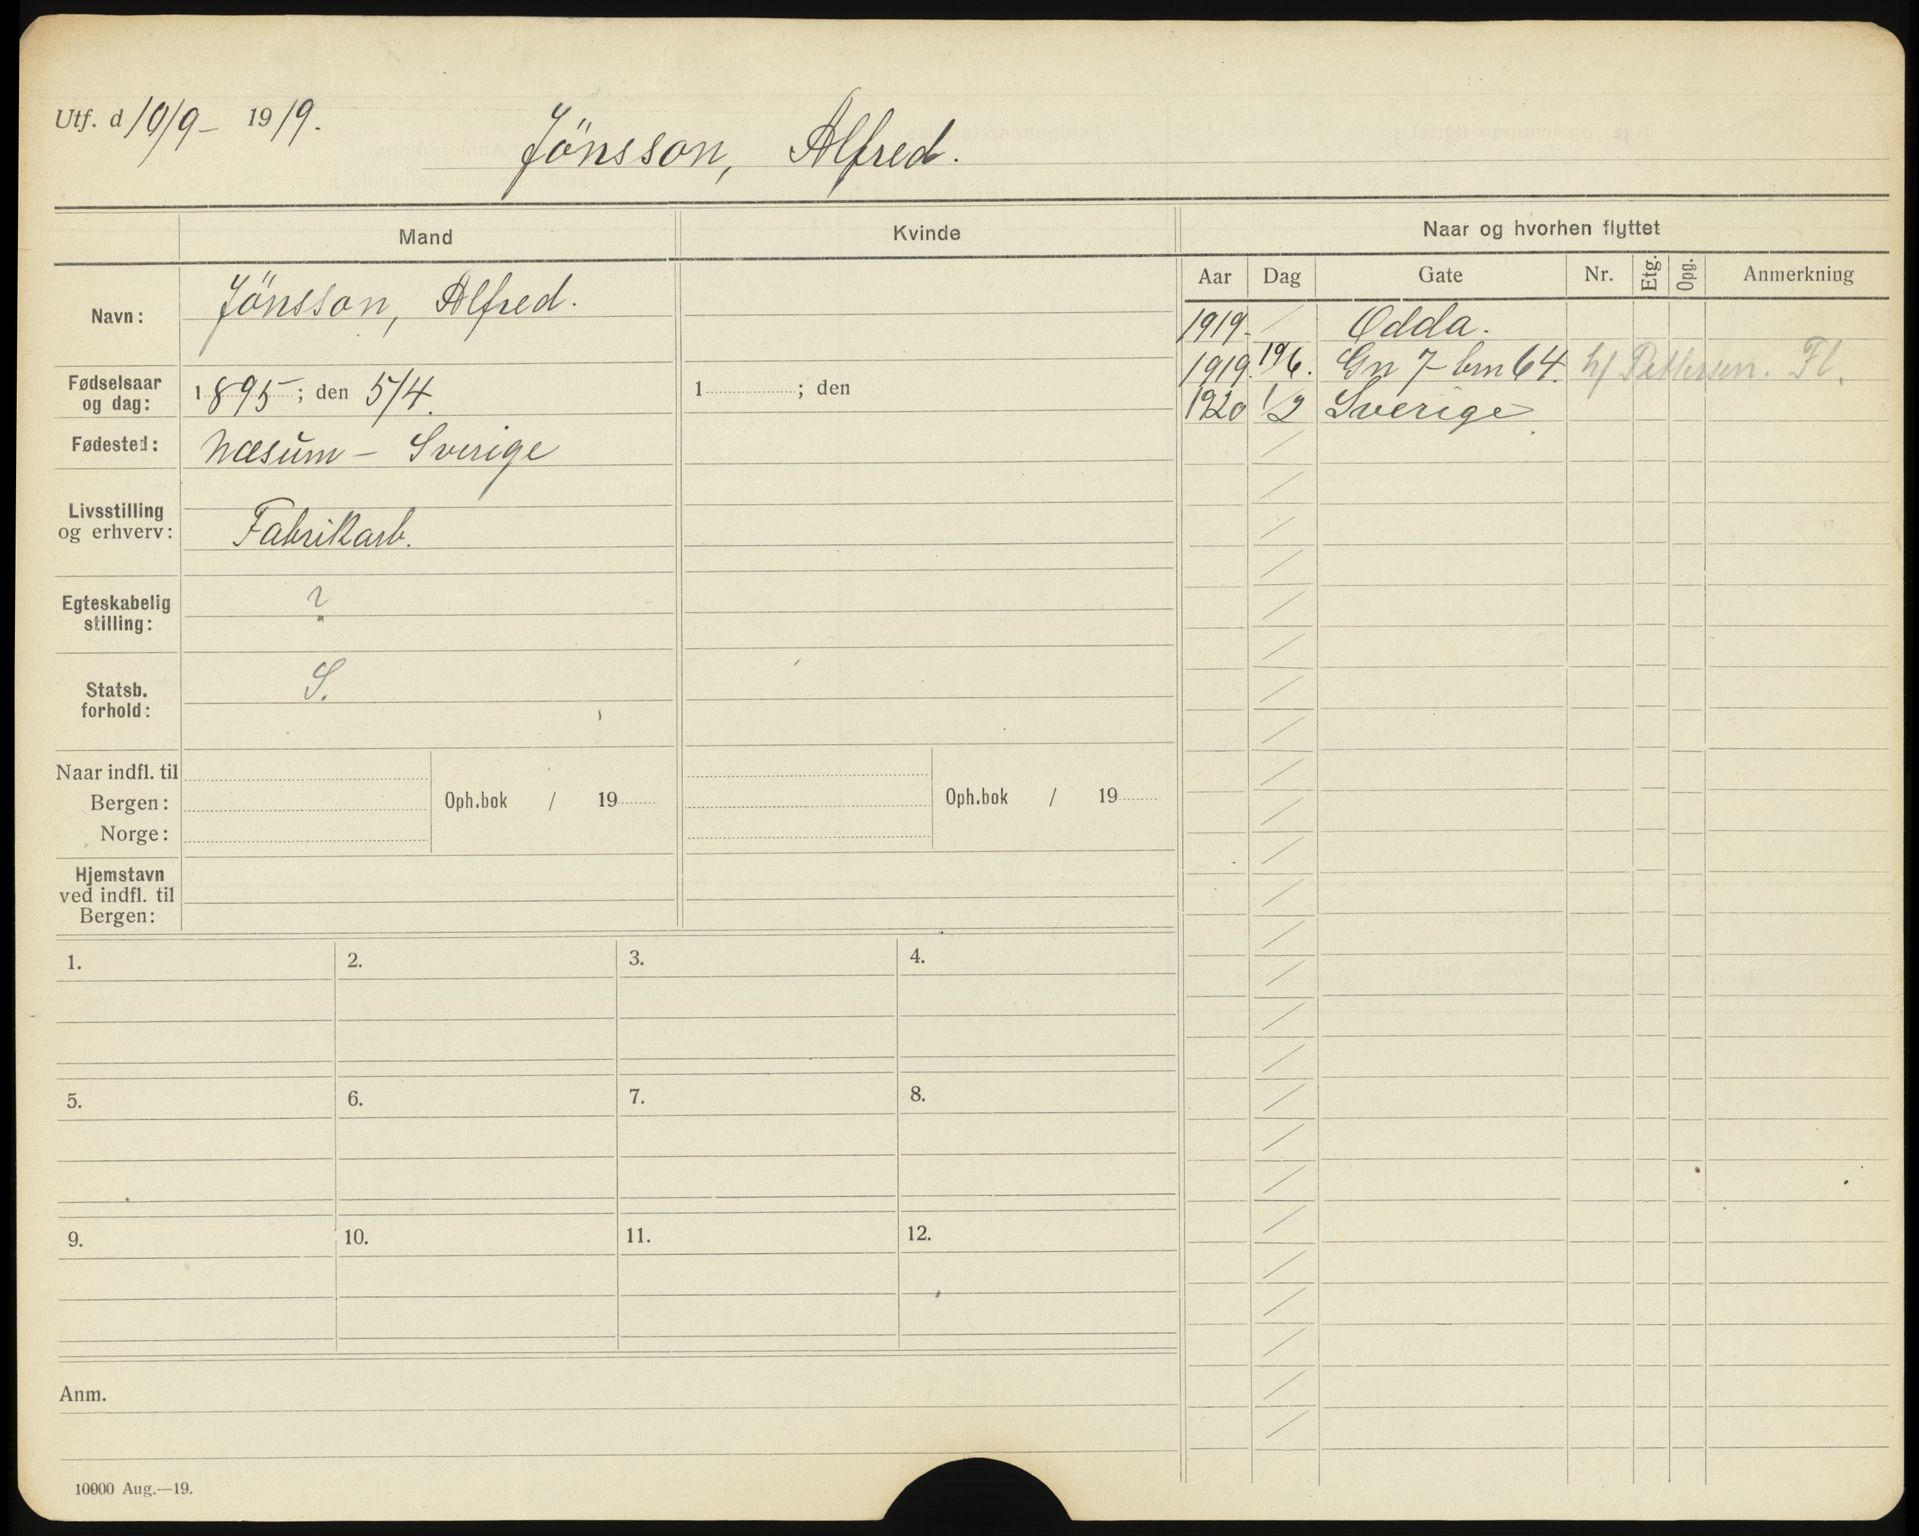 Utf. d 10/9 - 1919.
Jönsson, Alfred.
Mand
Kvinde
Naar og hvorhen flyttet
Aar Dag Gate Nr. Etg. Opg. Anmerkning
Navn: Jönsson, Alfred.
Fødselsaar og dag: 1895; den 5/4.
1 ; den
Fødested: Næsum - Sverige
Livsstilling og erhverv: Fabrikarb.
Egteskabelig stilling: ?
Statsb. forhold: S.
Naar indfl. til
Bergen:
Norge:
Oph.bok / 19
Oph.bok / 19
Hjemstavn
ved indfl. til
Bergen:
1919. / Odda.
1919. 19/6. Gn 7 - bm 64. h/ Pettersen. Fl.
1920 1/2 Sverige
1. 2. 3. 4.
5. 6. 7. 8.
9. 10. 11. 12.
Anm.
10000 Aug.—19.